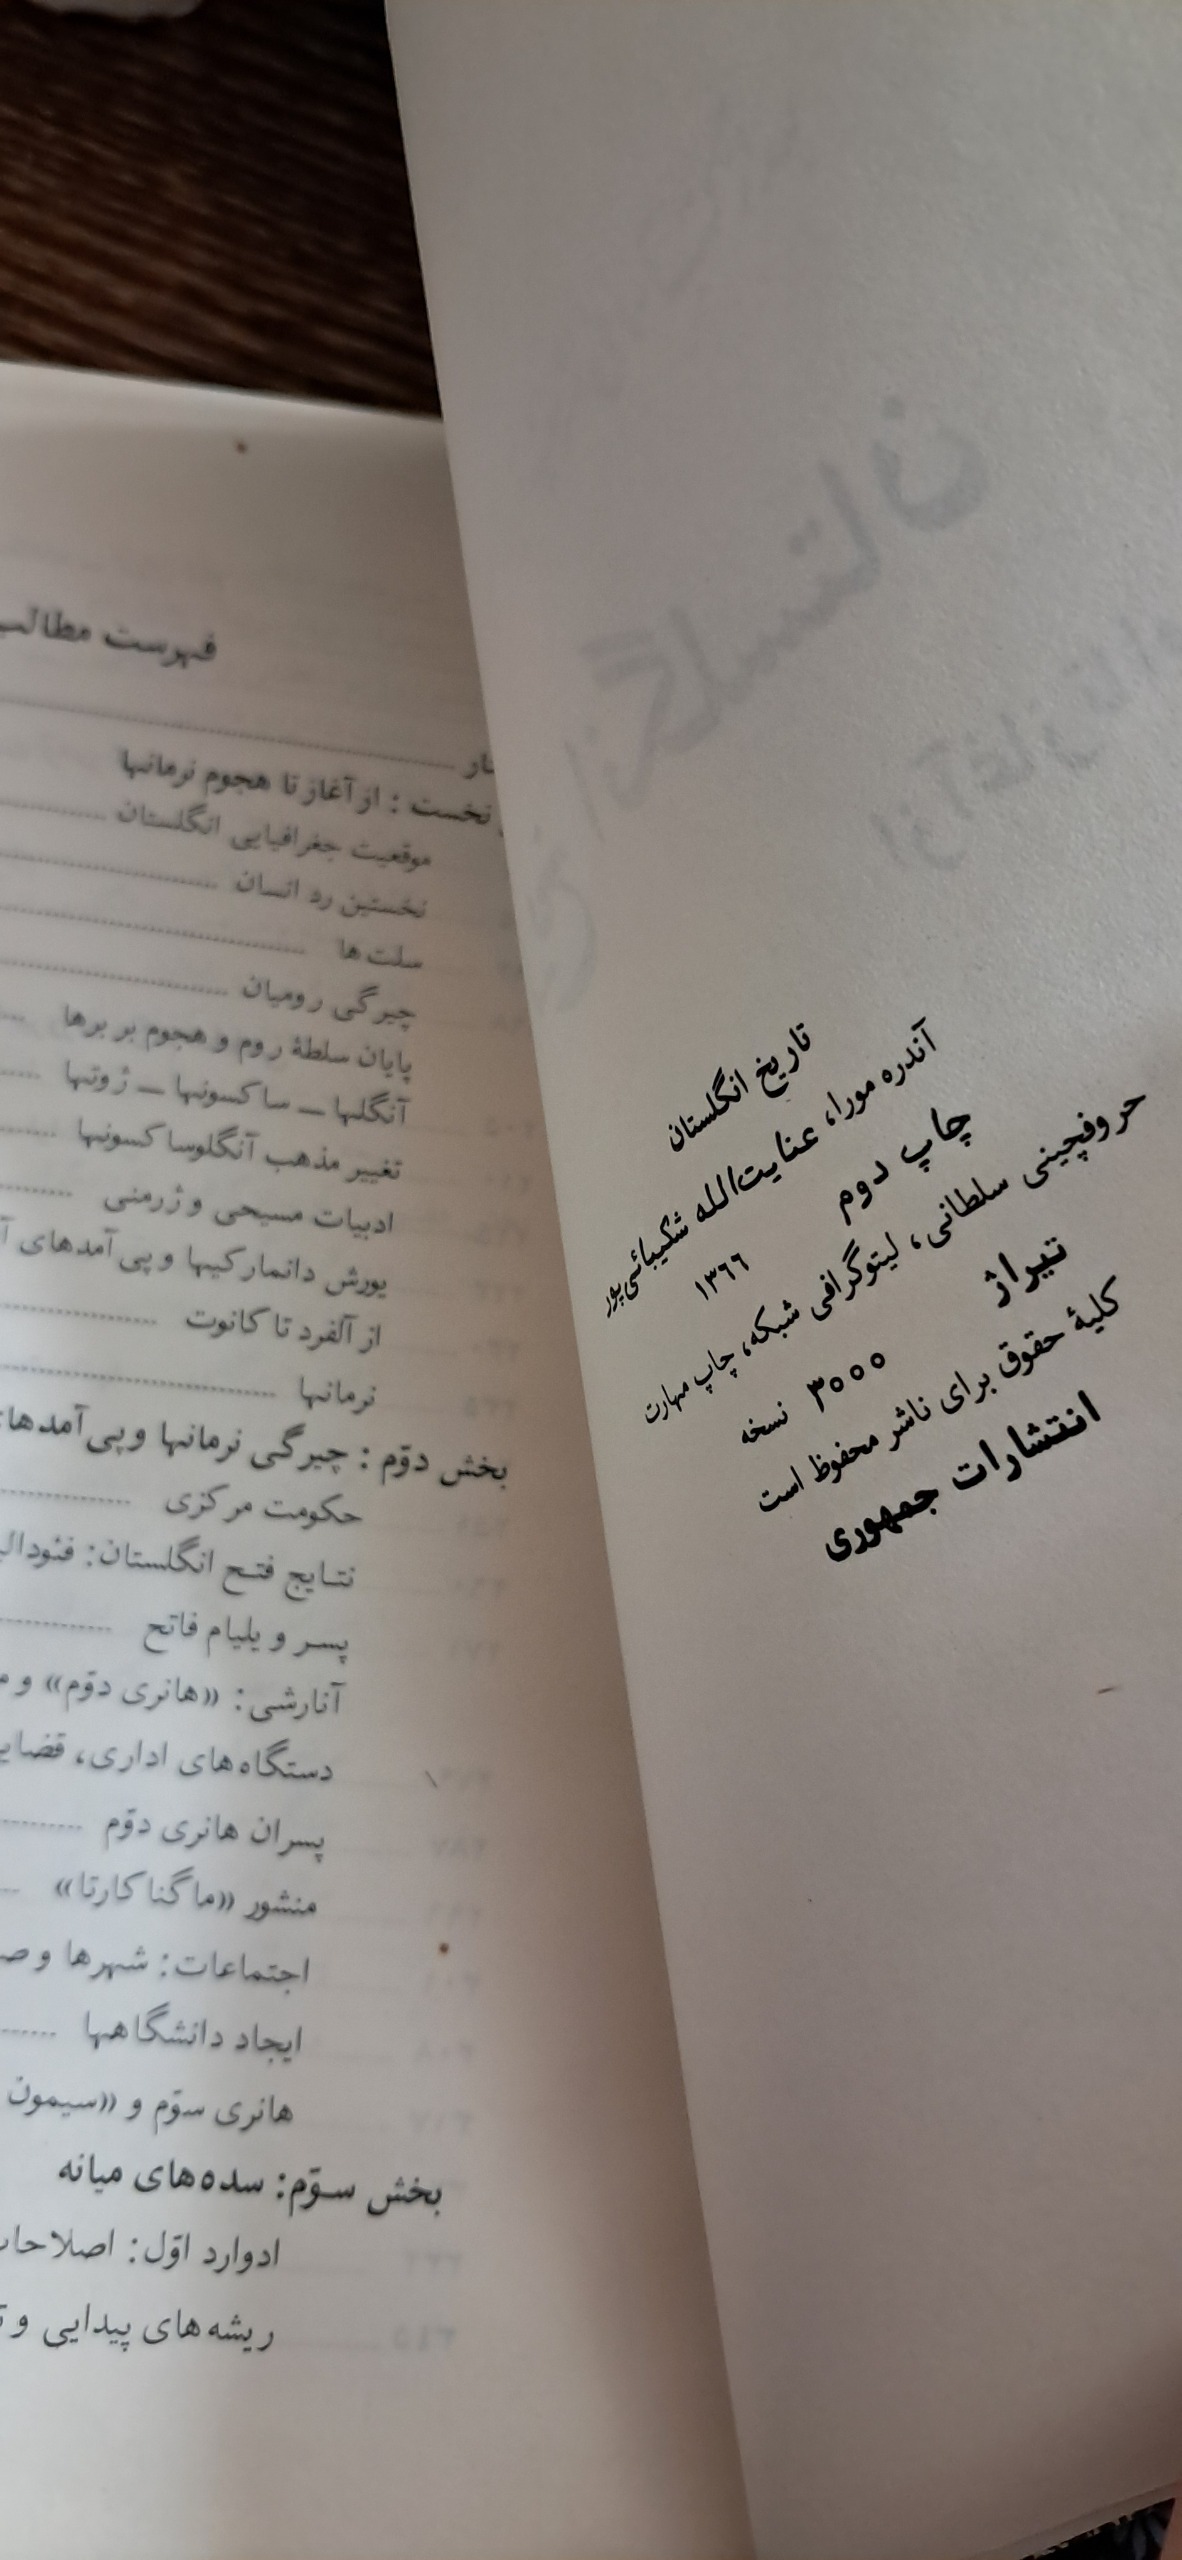 تاریخ انگلستان
آندره مورا، عنایت‌الله شکیبائی‌پور
چاپ دوم
۱۳۶۶
حروفچینی سلطانی، لیتوگرافی شبکه، چاپ مهارت
تیراژ
۳۰۰۰ نسخه
کلیهٔ حقوق برای ناشر محفوظ است
انتشارات جمهوری
فهرست مطالب
نخست : از آغاز تا هجوم نرمانها
موقعیت جغرافیایی انگلستان
نخستین رد انسان
سلت ها
چیرگی رومیان
پایان سلطهٔ روم و هجوم بربرها
آنگلها ــ ساکسونها ــ ژوتها
تغییر مذهب آنگلوساکسونها
ادبیات مسیحی و ژرمنی
یورش دانمارکیها و پی‌آمدهای
از آلفرد تا کانوت
نرمانها
بخش دوّم : چیرگی نرمانها و پی‌آمدهای
حکومت مرکزی
نتایج فتح انگلستان:
پسر ویلیام فاتح
آنارشی: «هانری دوّم» و
دستگاه‌های اداری،
پسران هانری دوّم
منشور «ماگنا کارتا»
اجتماعات: شهرها و
ایجاد دانشگاهها
هانری سوّم و «سیمون
بخش سوّم: سده‌های میانه
ادوارد اوّل:
ریشه‌های پیدایی و